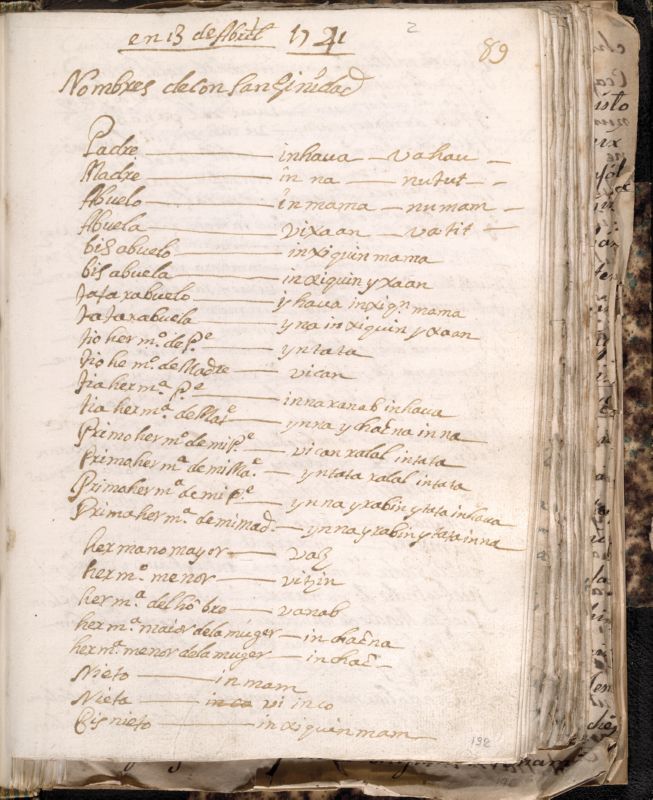 en 13 de Abril 1741
2
89
Nombres de consanguinidad
Padre — inhaua — vahau —
Madre — in na — nutut —
Abuelo — in mama — numam —
Abuela — vixaan — vatit —
bis abuelo — inxiquin mama
bis abuela — inxiquin yxaan
tatarabuelo — yhaua inxiqn mama
tatarabuela — yna in xiquin yxaan
tio herm.º de P.e — yntata
tio he m.º de Madre — vican
tia herm.a P.e — innaxanab inhaua
tia herm.a de Mae — ynna y chaêna in na
Primo herm.º de mi P.e — vican xalal intata
Primo her m.a de mi Ma.e — yntata xalal intata
Prima her m.a de mi P.e — ynna yrabin ytata inhaua
Prima her m.a de mi mad. — ynna yrabin ytata inna
hermano mayor — vaz
herm.º menor — vitzin
her m.a del hôbre — vanab
her m.a maior de la muger — in chaêna
her m.a menor de la muger — in chaê —
Nieto — in mam
Nieta — in ca vi in co
Bis nieto — in xiquin mam
132